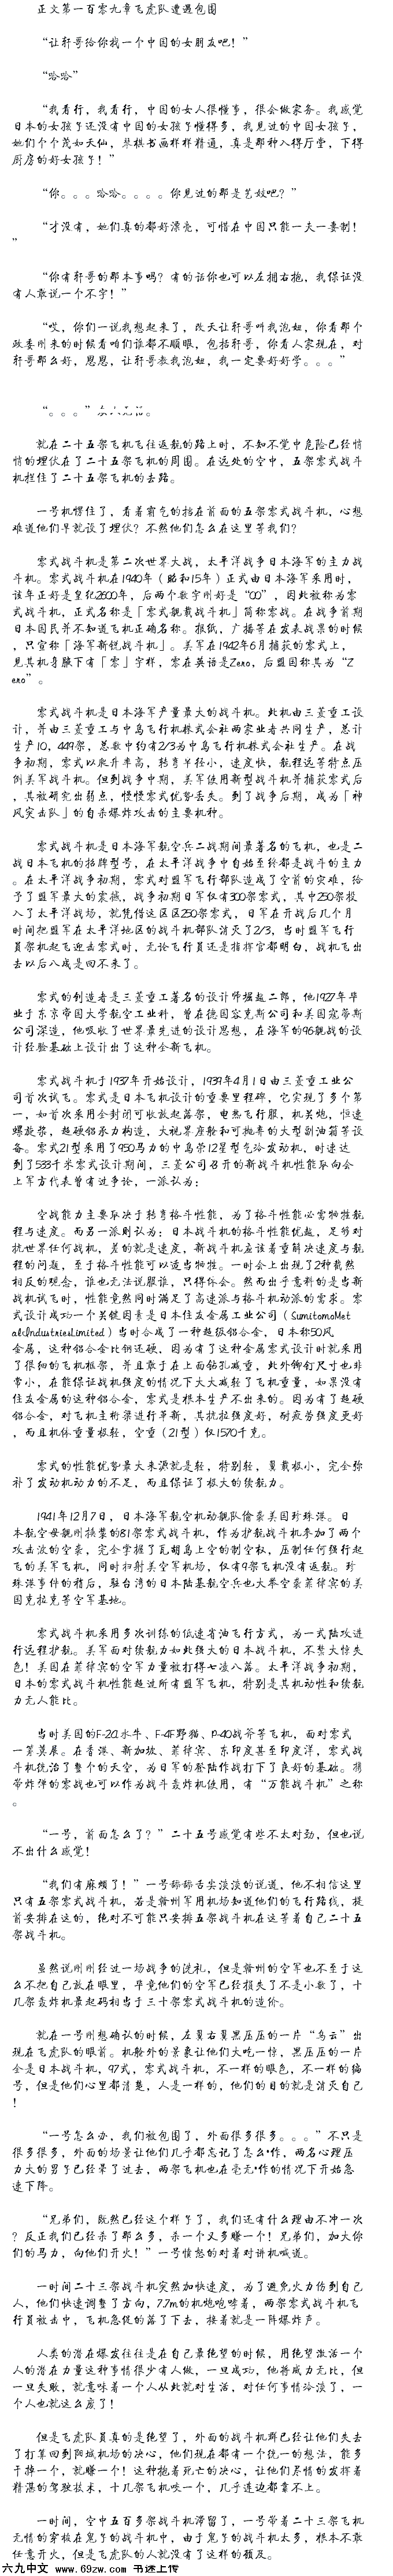 正文第一百零九章飞虎队遭遇包围
“让轩哥给你找一个中国的女朋友吧！”
“哈哈”
“我看行，我看行，中国的女人很懂事，很会做家务。我感觉
日本的女孩子还没有中国的女孩子懂得多，我见过的中国女孩子，
她们个个茂如天仙，琴棋书画样样精通，真是那种入得厅堂，下得
厨房的好女孩子！”
“你。。。哈哈。。。。你见过的那是艺妓吧？”
“才没有，她们真的都好漂亮，可惜在中国只能一夫一妻制！
”
“你有轩哥的那本事吗？有的话你也可以左拥右抱，我保证没
有人敢说一个不字！”
“哎，你们一说我想起来了，改天让轩哥叫我泡妞，你看那个
政委刚来的时候看咱们谁都不顺眼，包括轩哥，你看人家现在，对
轩哥那么好，恩恩，让轩哥教我泡妞，我一定要好好学。。。”
“。。。”
就在二十五架飞机飞往返航的路上时，不知不觉中危险已经悄
悄的埋伏在了二十五架飞机的周围。在远处的空中，五架零式战斗
机拦住了二十五架飞机的去路。
一号机愣住了，看着霸气的挡在前面的五架零式战斗机，心想
难道他们早就设了埋伏？不然他们怎么在这里等我们？
零式战斗机是第二次世界大战，太平洋战争日本海军的主力战
斗机。零式战斗机在1940年（昭和15年）正式由日本海军采用时，
该年正好是皇纪2600年，后两个数字刚好是“00”，因此被称为零
式战斗机，正式名称是「零式舰载战斗机」简称零战。在战争前期
日本国民并不知道飞机正确名称。报纸，广播等在发表战果的时候
，只宣称「海军新锐战斗机」。美军在1942年6月捕获的零式上，
见其机身腋下有「零」字样，零在英语是Zero，后盟国称其为“Z
ero”。
零式战斗机是日本海军产量最大的战斗机。此机由三菱重工设
计，并由三菱重工与中岛飞行机株式会社两家业者共同生产，总计
生产10，449架，总数中约有2/3为中岛飞行机株式会社生产。在战
争初期，零式以爬升率高，转弯半径小，速度快，航程远等特点压
倒美军战斗机。但到战争中期，美军使用新型战斗机并捕获零式后
，其被研究出弱点，慢慢零式优势丢失。到了战争后期，成为「神
风突击队」的自杀爆炸攻击的主要机种。
零式战斗机是日本海军航空兵二战期间最著名的飞机，也是二
战日本飞机的招牌型号，在太平洋战争中自始至终都是战斗的主力
。在太平洋战争初期，零式对盟军飞行部队造成了空前的灾难，给
予了盟军最大的震撼，战争初期日军仅有300架零式，其中250架投
入了太平洋战场，就凭借这区区250架零式，日军在开战后几个月
时间把盟军在太平洋地区的战斗机部队消灭了2/3，当时盟军飞行
员架机起飞迎击零式时，无论飞行员还是指挥官都明白，战机飞出
去以后八成是回不来了。
零式的创造者是三菱重工著名的设计师堀越二郎，他1927年毕
业于东京帝国大学航空工业科，曾在德国容克斯公司和美国寇蒂斯
公司深造，他吸收了世界最先进的设计思想，在海军的96舰战的设
计经验基础上设计出了这种全新飞机。
零式战斗机于1937年开始设计，1939年4月1日由三菱重工业公
司首次试飞。零式是日本飞机设计的重要里程碑，它实现了多个第
一，如首次采用全封闭可收放起落架，电热飞行服，机关炮，恒速
螺旋桨，超硬铝承力构造，大视界座舱和可抛弃的大型副油箱等设
备。零式21型采用了950马力的中岛荣12星型气冷发动机，时速达
到了533千米零式设计期间，三菱公司召开的新战斗机性能取向会
上军方代表曾有过争论，一派认为：
空战能力主要取决于转弯格斗性能，为了格斗性能必需牺牲航
程与速度。而另一派则认为：日本战斗机的格斗性能优越，足够对
抗世界任何战机，差的就是速度，新战斗机应该着重解决速度与航
程的问题，至于格斗性能可以适当牺牲。一时会上出现了2种截然
相反的观念，谁也无法说服谁，只得休会。然而出乎意料的是当新
战机试飞时，性能竟然同时满足了高速派与格斗机动派的需求。零
式设计成功一个关键因素是日本住友金属工业公司（SumitomoMet
al&IndustriesLimited）当时合成了一种超级铝合金，日本称50风
金属，这种铝合金比钢还硬，因为有了这种金属零式设计时就采用
了很细的飞机框架，并且敢于在上面钻孔减重，此外铆钉尺寸也非
常小，在能保证战机强度的情况下大大减轻了飞机重量，如果没有
住友金属的这种铝合金，零式是根本生产不出来的。因为有了超硬
铝合金，对飞机主桁梁进行革新，其抗拉强度好，耐疲劳强度更好
，而且机体重量极轻，空重（21型）仅1570千克。
零式的性能优势最大来源就是轻，特别轻，翼载极小，完全弥
补了发动机动力的不足，而且保证了极大的续航力。
1941年12月7日，日本海军航空机动舰队偷袭美国珍珠港。日
本航空母舰刚换装的81架零式战斗机，作为护航战斗机参加了两个
攻击波的空袭，完全掌握了瓦胡岛上空的制空权，压制任何强行起
飞的美军飞机，同时扫射美空军机场，仅有9架飞机没有返航。珍
珠港事件的稍后，驻台湾的日本陆基航空兵也大举空袭菲律宾的美
国克拉克等空军基地。
零式战斗机采用多次训练的低速省油飞行方式，为一式陆攻进
行远程护航。美军面对续航力如此强大的日本战斗机，不禁大惊失
色！美国在菲律宾的空军力量被打得七零八落。太平洋战争初期，
日本的零式战斗机性能超过所有盟军飞机，特别是其机动性和续航
力无人能比。
当时美国的F-20水牛、F-4F野猫、P-40战斧等飞机，面对零式
一筹莫展。在香港、新加坡、菲律宾、东印度甚至印度洋，零式战
斗机统治了整个的天空，为日军的登陆作战打下了良好的基础。携
带炸弹的零战也可以作为战斗轰炸机使用，有“万能战斗机”之称
。
“一号，前面怎么了？”二十五号感觉有些不太对劲，但也说
不出什么感觉！
“我们有麻烦了！”一号舔舔舌尖淡淡的说道，他不相信这里
只有五架零式战斗机，若是赣州军用机场知道他们的飞行路线，提
前安排在这的，绝对不可能只安排五架战斗机在这等着自己二十五
架战斗机。
虽然说刚刚经过一场战争的洗礼，但是赣州的空军也不至于这
么不把自己放在眼里，毕竟他们的空军已经损失了不是小数了，十
几架轰炸机最起码相当于三十架零式战斗机的造价。
就在一号刚想确认的时候，左翼右翼黑压压的一片“乌云”出
现在飞虎队的眼前。机舱外的景象让他们大吃一惊，黑压压的一片
全是日本战斗机，97式，零式战斗机，不一样的眼色，不一样的编
号，但是他们心里都清楚，人是一样的，他们的目的就是消灭自己
！
“一号怎么办，我们被包围了，外面很多很多。。。”不只是
很多很多，外面的场景让他们几乎都忘记了怎么*作，两名心理压
力大的男子已经晕了过去，两架飞机也在毫无*作的情况下开始急
速下降。
“兄弟们，既然已经这个样子了，我们还有什么理由不冲一次
？反正我们已经杀了那么多，杀一个又多赚一个！兄弟们，加大你
们的马力，向他们开火！”一号愤怒的对着对讲机喊道。
一时间二十三架战斗机突然加快速度，为了避免火力伤到自己
人，他们快速调整了方向，7.7m的机炮咆哮着，两架零式战斗机飞
行员被击中，飞机急促的落了下去，接着就是一阵爆炸声。
人类的潜在爆发往往是在自己最绝望的时候，用绝望激活一个
人的潜在力量这种事情很少有人做，一旦成功，他将威力无比，但
一旦失败，就意味着一个人从此就对生活，对任何事情冷淡了，一
个人也就这么废了！
但是飞虎队员真的是绝望了，外面的战斗机群已经让他们失去
了打算回到阳城机场的决心，他们现在都有一个统一的想法，能多
干掉一个，就赚一个！这种抱着死亡的决心，让他们尽情的发挥着
精湛的驾驶技术，十几架飞机咬一个，几乎连边都靠不上。
一时间，空中五百多架战斗机滞留了，一号带着二十三架飞机
无情的穿梭在鬼子的战斗机中，由于鬼子的战斗机太多，根本不敢
任意开火，但是飞虎队的人就没有了这样的顾及。
六九中文 www.69zw.com 书迷上传